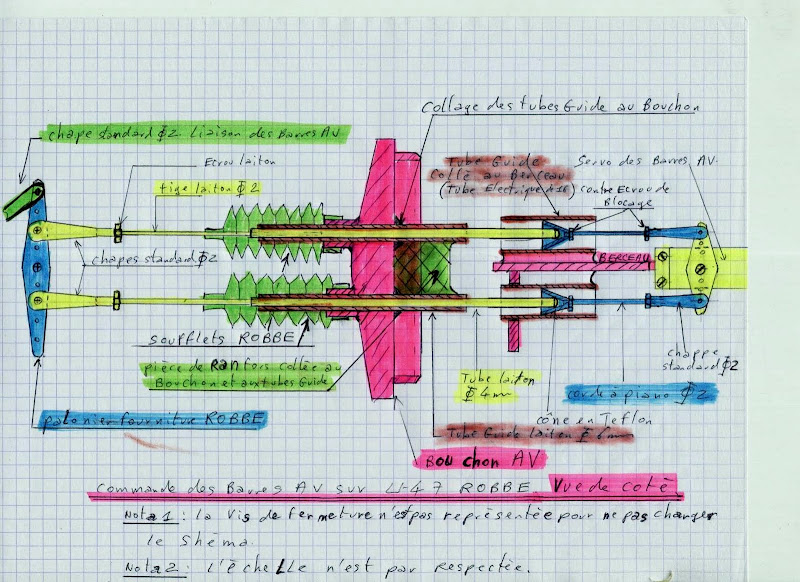 Collage des tubes Guide au Bouchon
chape standard Φ2 Liaison des Barres AV
Ecrou laiton
tige laiton Φ2
Tube Guide
Collé au Berceau
(Tube Electrique
Servo des Barres AV.
contre Ecrou de
Blocage
chapes standard Φ2
BERCEAU
soufflets ROBBE
pièce de Ranfors collée au
Bouchon et aux tubes Guide
Tube laiton
Φ 4mm
chappe
standard Φ2
corde à piano Φ2
palonier fourniture ROBBE
cône en Teflon
Tube Guide laiton Φ 6mm
Bouchon AV
Commande des Barres AV sur U-47 ROBBE Vue de coté
Nota 1: la vis de fermeture n'est pas représentée pour ne pas charger
le shéma.
Nota 2: l'échelle n'est par respectée.